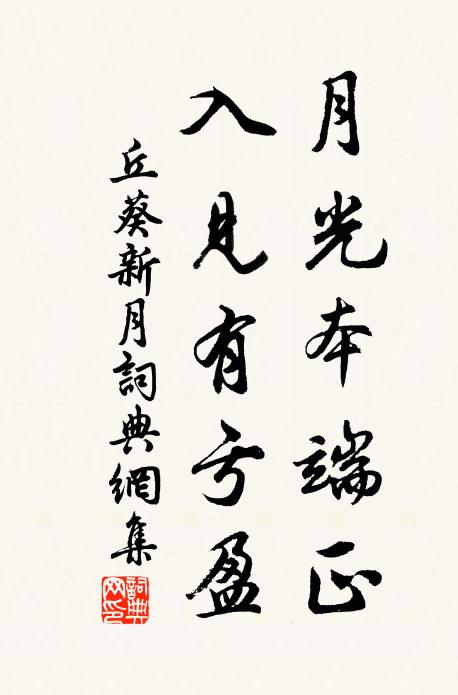 月光本端正
入見有亏盈
丘葵新月詞典網集
詞典網印